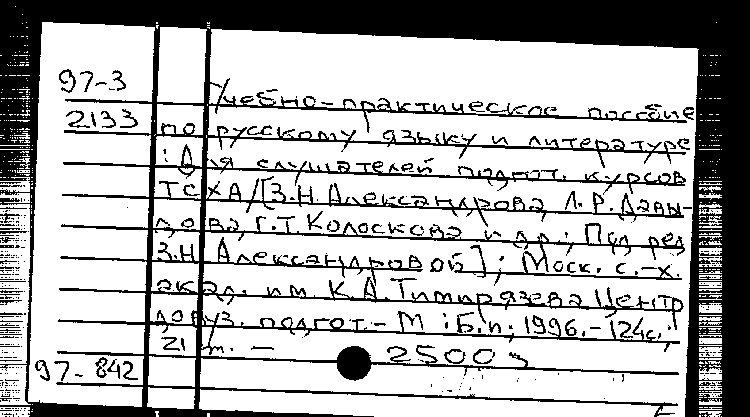 97-3
Учебно-практическое пособие
2133 по русскому языку и литературе
: Для слушателей подгот. курсов
ТСХА/[З.Н.Александрова, Л.Р.Давы-
дова, Г.Т.Колоскова и др.; Под ред
З.Н Александровой]; Моск. с.-х.
акад. им. К.А.Тимирязева Центр
довуз. подгот.- М : Б.и; 1996.-124с.;
21 т. - 2500
97-842